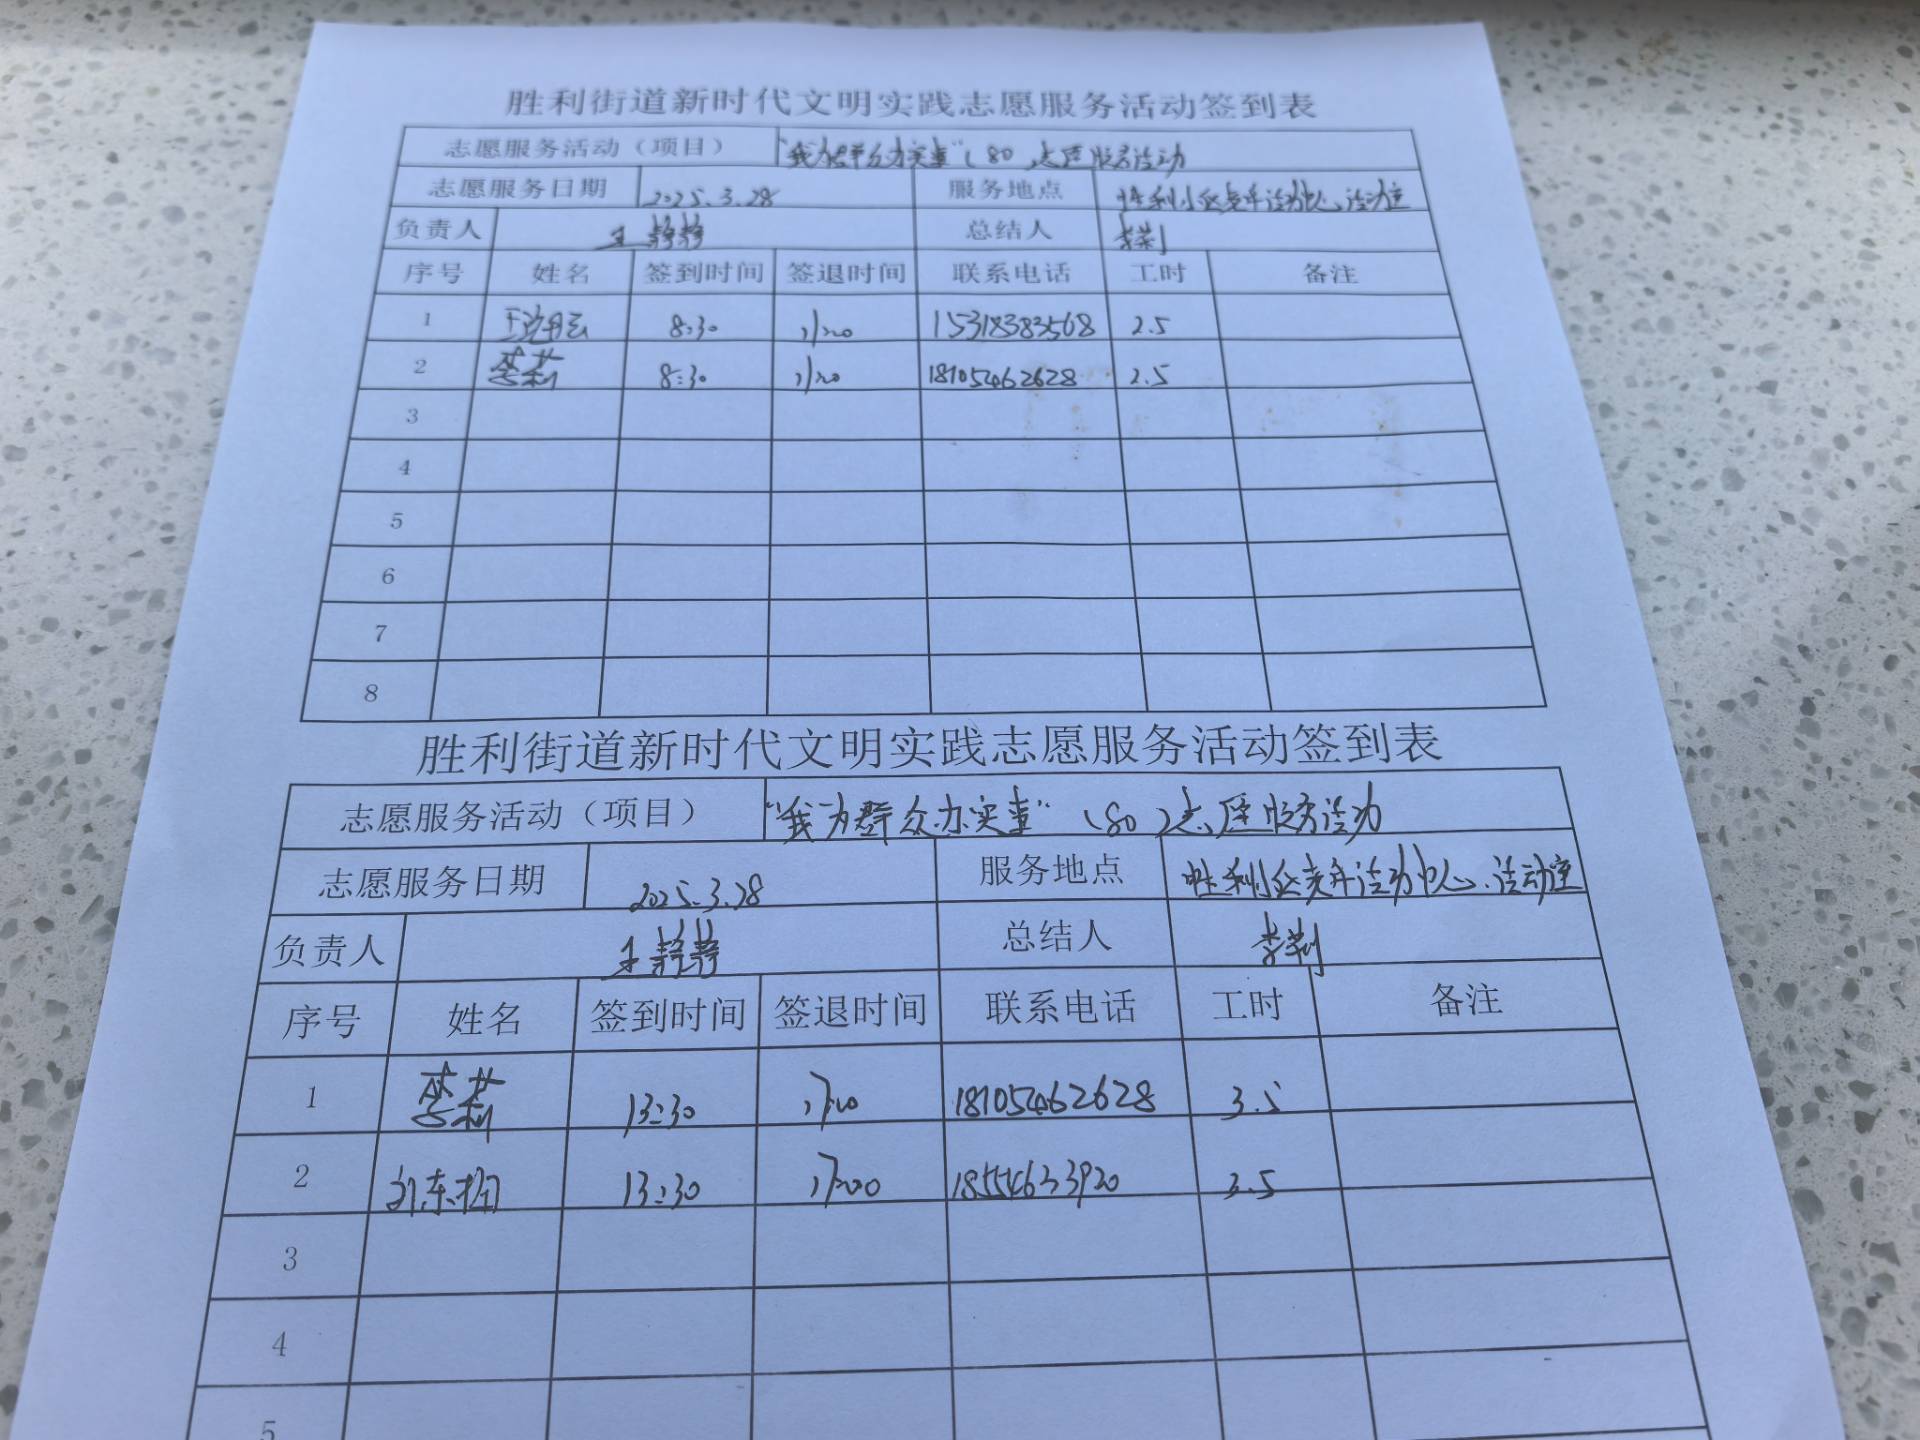 胜利街道新时代文明实践志愿服务活动签到表
志愿服务活动（项目） “我为群众办实事”（80）志愿服务活动
志愿服务日期 2025.3.28 服务地点 胜利小区老年活动中心、活动室
负责人 王静静 总结人 李莉
序号 姓名 签到时间 签退时间 联系电话 工时 备注
1 8:30 11:00 15318383568 2.5
2 李莉 8:30 11:00 18105462628 2.5
3
4
5
6
7
8
胜利街道新时代文明实践志愿服务活动签到表
志愿服务活动（项目） “我为群众办实事”（80）志愿服务活动
志愿服务日期 2025.3.28 服务地点 胜利小区老年活动中心、活动室
负责人 王静静 总结人 李莉
序号 姓名 签到时间 签退时间 联系电话 工时 备注
1 李莉 13:30 17:00 18105462628 3.5
2 13:30 17:00 18554633920 3.5
3
4
5